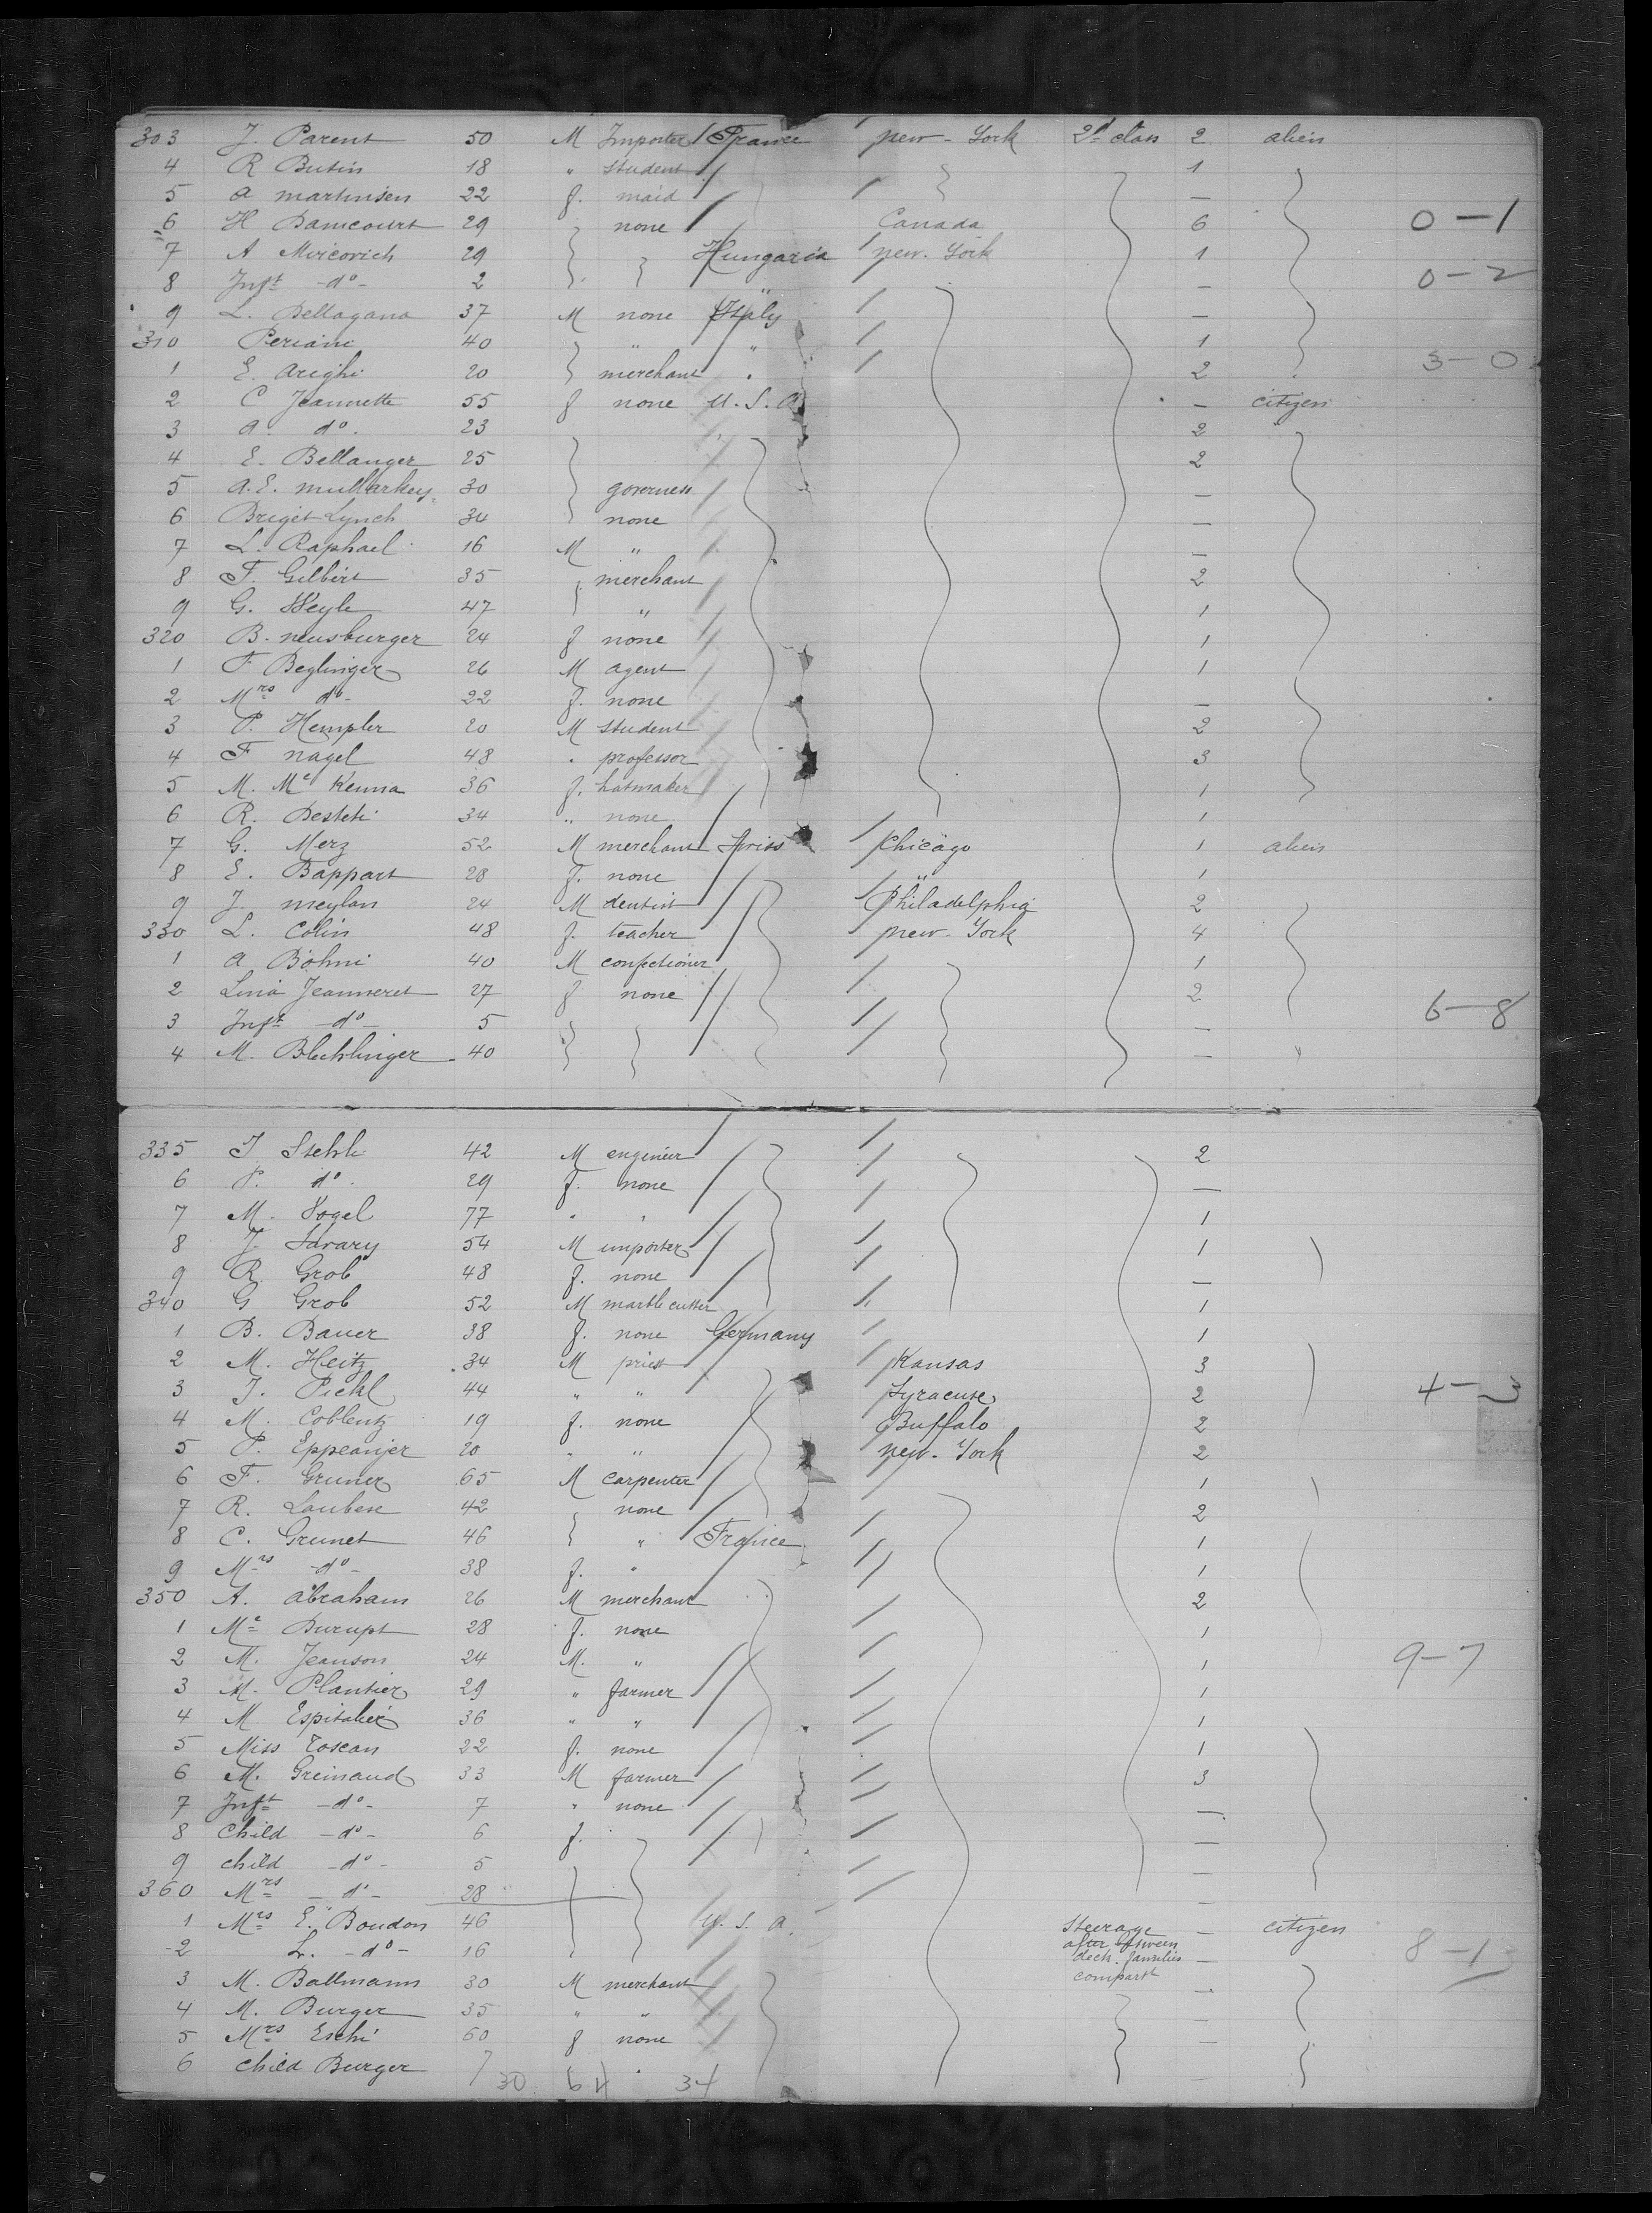 303 J. Parent 50 M Importer France new-York 2d class 2 alien
4 R Butin 18 " student 1
5 a martinsen 22 f. maid —
6 H Damcourt 29 none Canada 6 0-1
7 A Mircovich 29 Hungaria new-York 1
8 Inft -do- 2 " — 0-2
9 L. Dellagana 37 M none Italy —
310 Periani 40 " " 1
1 E. arighi 20 merchant " 2 3-0
2 C Jeannette 55 f none U.S.A — citizen
3 a. do. 23 2
4 E. Bellanger 25 2
5 A.E. mullarkey 30 governess —
6 Briget Lynch 34 none —
7 L. Raphael 16 M " —
8 F. Gilbert 35 merchant 2
9 G. Weyle 47 " 1
320 B. neusburger 24 f none 1
1 F Beglinger 26 M agent 1
2 Mrs do- 22 f. none —
3 P. Hempler 20 M student 2
4 F nagel 48 " professor 3
5 M. Mc Kenna 36 f. hatmaker 1
6 R. Desteti 34 " none 1
7 G. Merz 52 M merchant Chicago 1 alien
8 E. Bappart 28 f. none " 1
9 J. meylan 24 M dentist Philadelphia 2
330 L. Colin 48 f. teacher new-York 4
1 a Böhni 40 M confectioner 1
2 Lina Jeanneret 27 f none 2
3 Inft -do- 5 — 6-8
4 M. Blechlinger 40 — "
335 J Stehli 42 M engineer 2
6 P. do. 29 f. none —
7 M. Vogel 77 " " 1
8 J. Savary 54 M importer 1
9 R. Grob 48 f. none —
340 G Grob 52 M marble cutter 1
1 B. Bauer 38 f. none Germany 1
2 M. Heitz 34 M priest Kansas 3
3 J. Pickl 44 " " Syracuse 2 4-3
4 M. Coblentz 19 f. none Buffalo 2
5 P. Eppeanjer 20 " " new-York 2
6 F. Gruner 65 M carpenter 1
7 R. Laubere 42 none 2
8 C. Grunet 46 " France 1
9 Mrs -do- 38 f. " 1
350 A. abraham 26 M merchant 2
1 Me Durupt 28 f. none 1
2 M. Jeanson 24 M. " 1 9-7
3 M. Plantier 29 " farmer 1
4 M Espitalier 36 " " 1
5 Miss Toscan 22 f. none 1
6 M. Greinaud 33 M farmer 3
7 Inft -do- 7 " none —
8 child -do- 6 f. —
9 child -do- 5 —
360 Mrs -do- 28 —
1 Mrs E. Boudon 46 U.S.A. Steerage — citizen
2 L. -do- 16 after between deck. families — 8-13
3 M. Ballmann 30 M merchant compart —
4 M. Burger 35 " " —
5 Mrs Eschi 60 f none —
6 child Burger 7
30 64 34